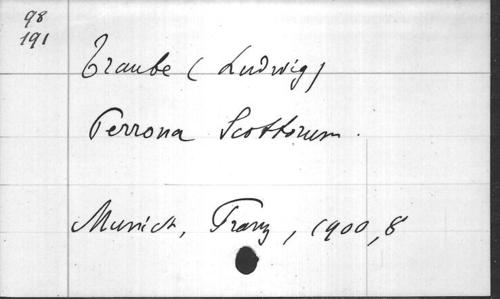 98
191
Traube (Ludwig)
Perrona Scottorum.
Munich, Franz, 1900, 8